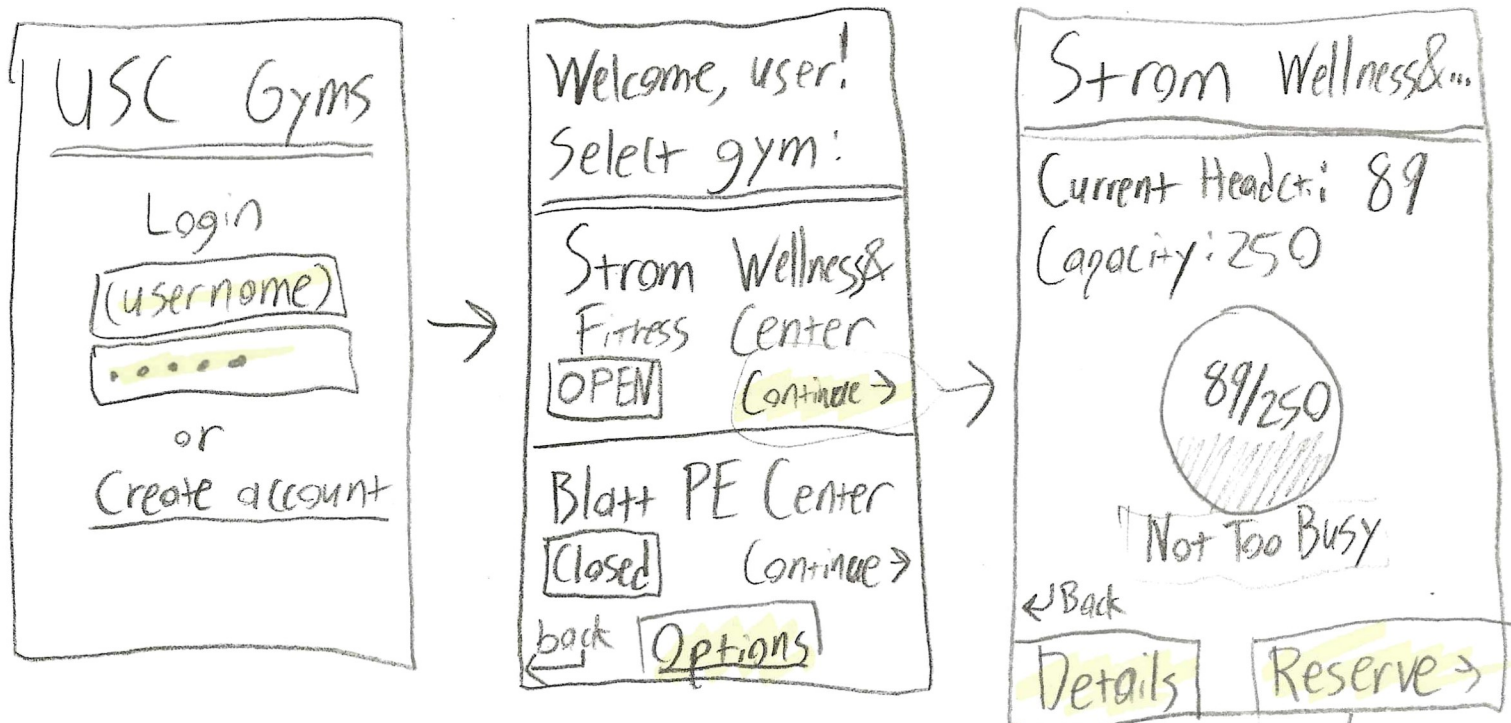 USC Gyms
Login
(username)
or
Create account
Welcome, user!
Select gym:
Strom Wellness&
Fitness Center
OPEN Continue →
Blatt PE Center
Closed Continue →
back Options
Strom Wellness&...
Current Headct.: 89
Capacity: 250
89/250
Not Too Busy
Back
Details Reserve →